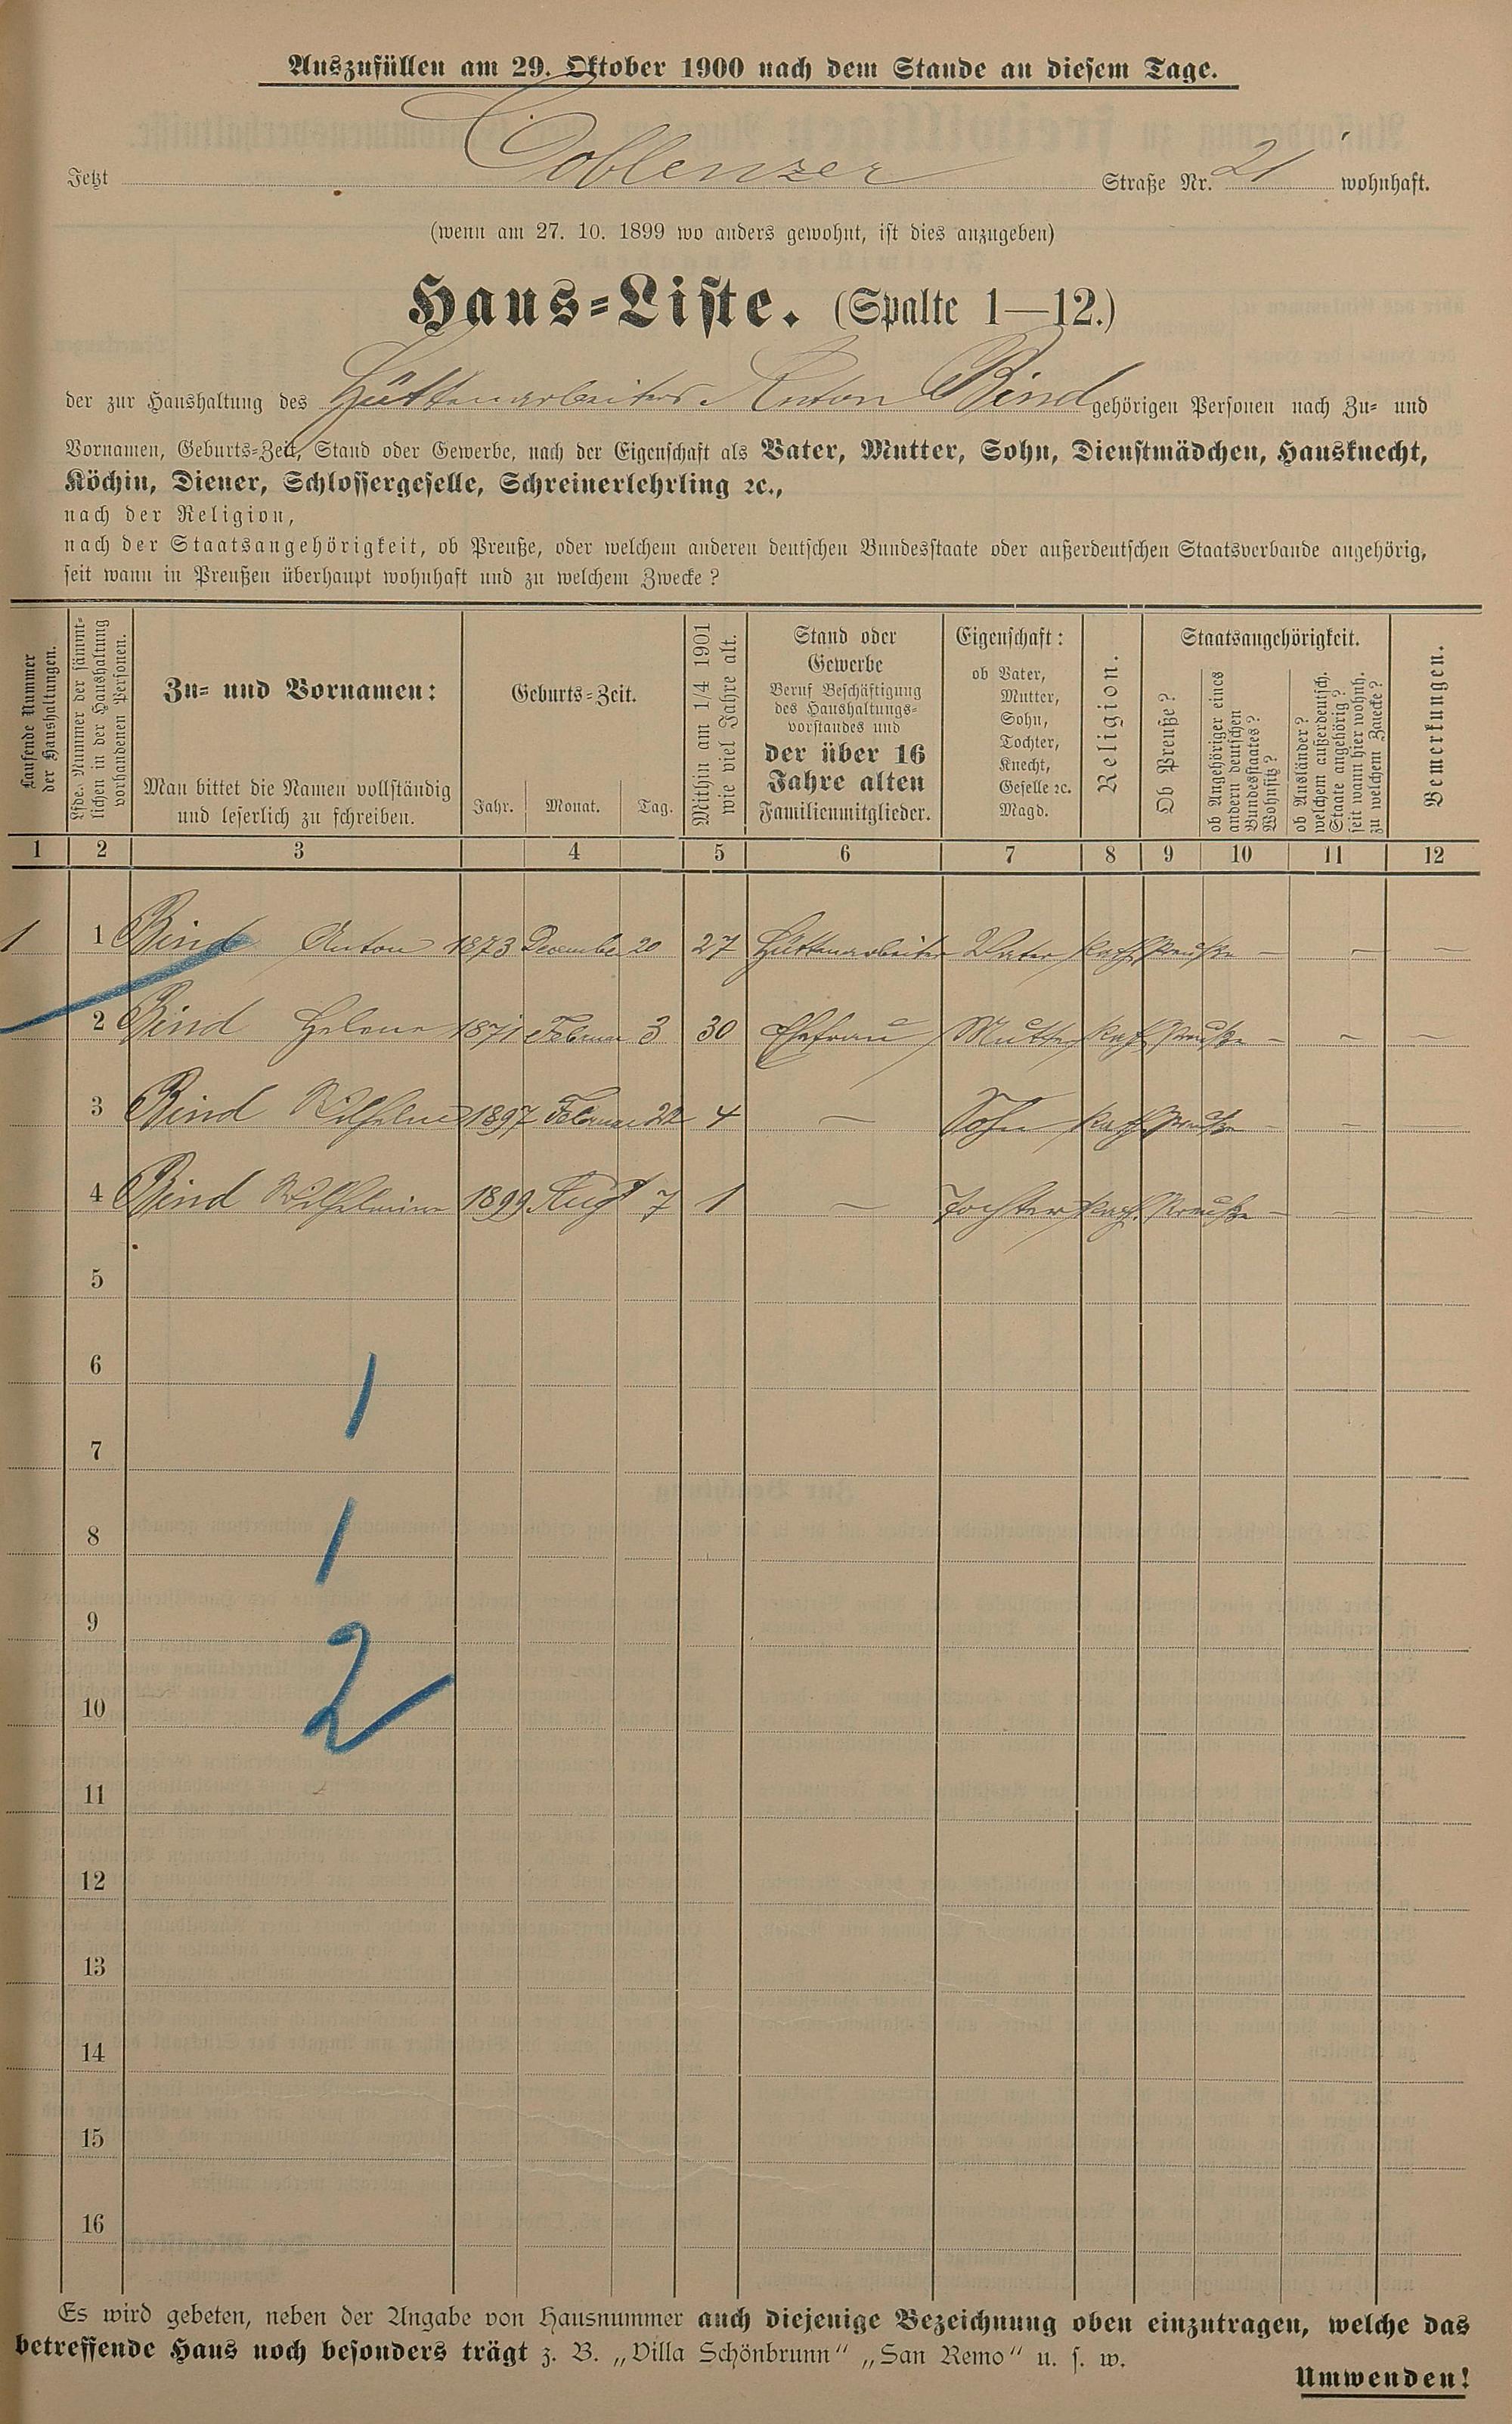 Auszufüllen am 29. Oktober 1900 nach dem Stande an diesem Tage.
Jetzt Coblenzer Straße Nr. 21 wohnhaft.
(wenn am 27. 10. 1899 wo anders gewohnt, ist dies anzugeben)
Haus-Liste. (Spalte 1—12.)
der zur Haushaltung des Hüttenarbeiters Anton Bind gehörigen Personen nach Zu- und
Vornamen, Geburts-Zeit, Stand oder Gewerbe, nach der Eigenschaft als Vater, Mutter, Sohn, Dienstmädchen, Hausknecht,
Köchin, Diener, Schlossergeselle, Schreinerlehrling ꝛc.,
nach der Religion,
nach der Staatsangehörigkeit, ob Preuße, oder welchem anderen deutschen Bundesstaate oder außerdeutschen Staatsverbande angehörig,
seit wann in Preußen überhaupt wohnhaft und zu welchem Zwecke?
Laufende Nummer
der Haushaltungen.
Lfde. Nummer der sämmt-
lichen in der Haushaltung
vorhandenen Personen.
Zu- und Vornamen:
Man bittet die Namen vollständig
und leserlich zu schreiben.
Geburts-Zeit.
Jahr. Monat. Tag.
Mithin am 1/4 1901
wie viel Jahre alt.
Stand oder
Gewerbe
Beruf Beschäftigung
des Haushaltungs-
vorstandes und
der über 16
Jahre alten
Familienmitglieder.
Eigenschaft:
ob Vater,
Mutter,
Sohn,
Tochter,
Knecht,
Geselle ꝛc.
Magd.
Religion.
Staatsangehörigkeit.
Ob Preuße?
ob Angehöriger eines
andern deutschen
Bundesstaates?
Wohnsitz?
ob Ausländer?
welchem außerdeutsch.
Staate angehörig?
seit wann hier wohnh.
zu welchem Zwecke?
Bemerkungen.
1 2 3 4 5 6 7 8 9 10 11 12
1 1 Bind Anton 1873 December 20 27 Hüttenarbeiter Vater kath. Preuße — — —
2 Bind Helene 1871 Februar 3 30 Ehefrau Mutter kath. Preuße — — —
3 Bind Wilhelm 1897 Februar 22 4 — Sohn kath. Preuße — — —
4 Bind Wilhelmine 1899 Aug 7 1 — Tochter kath. Preuße — — —
5
6
1
7
8 1
9
2
10
11
12
13
14
15
16
Es wird gebeten, neben der Angabe von Hausnummer auch diejenige Bezeichnung oben einzutragen, welche das
betreffende Haus noch besonders trägt z. B. „Villa Schönbrunn“ „San Remo“ u. s. w.
Umwenden!